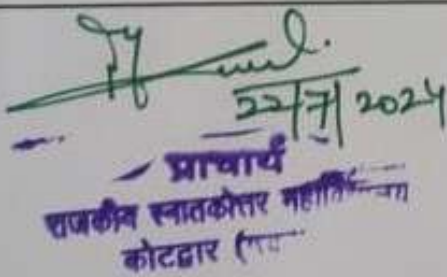 22/7/2024
प्राचार्य
राजकीय स्नातकोत्तर
कोटद्वार